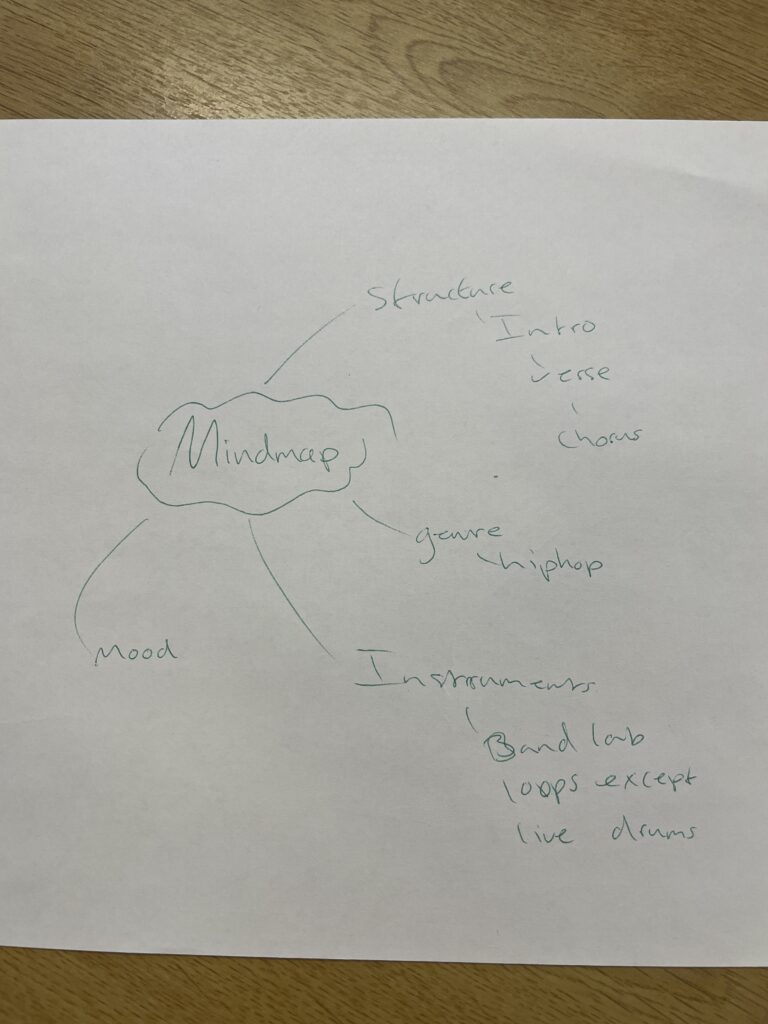 Structure
Intro
verse
chorus
Mindmap
genre
hiphop
Mood
Instruments
Band lab
loops except
live drums